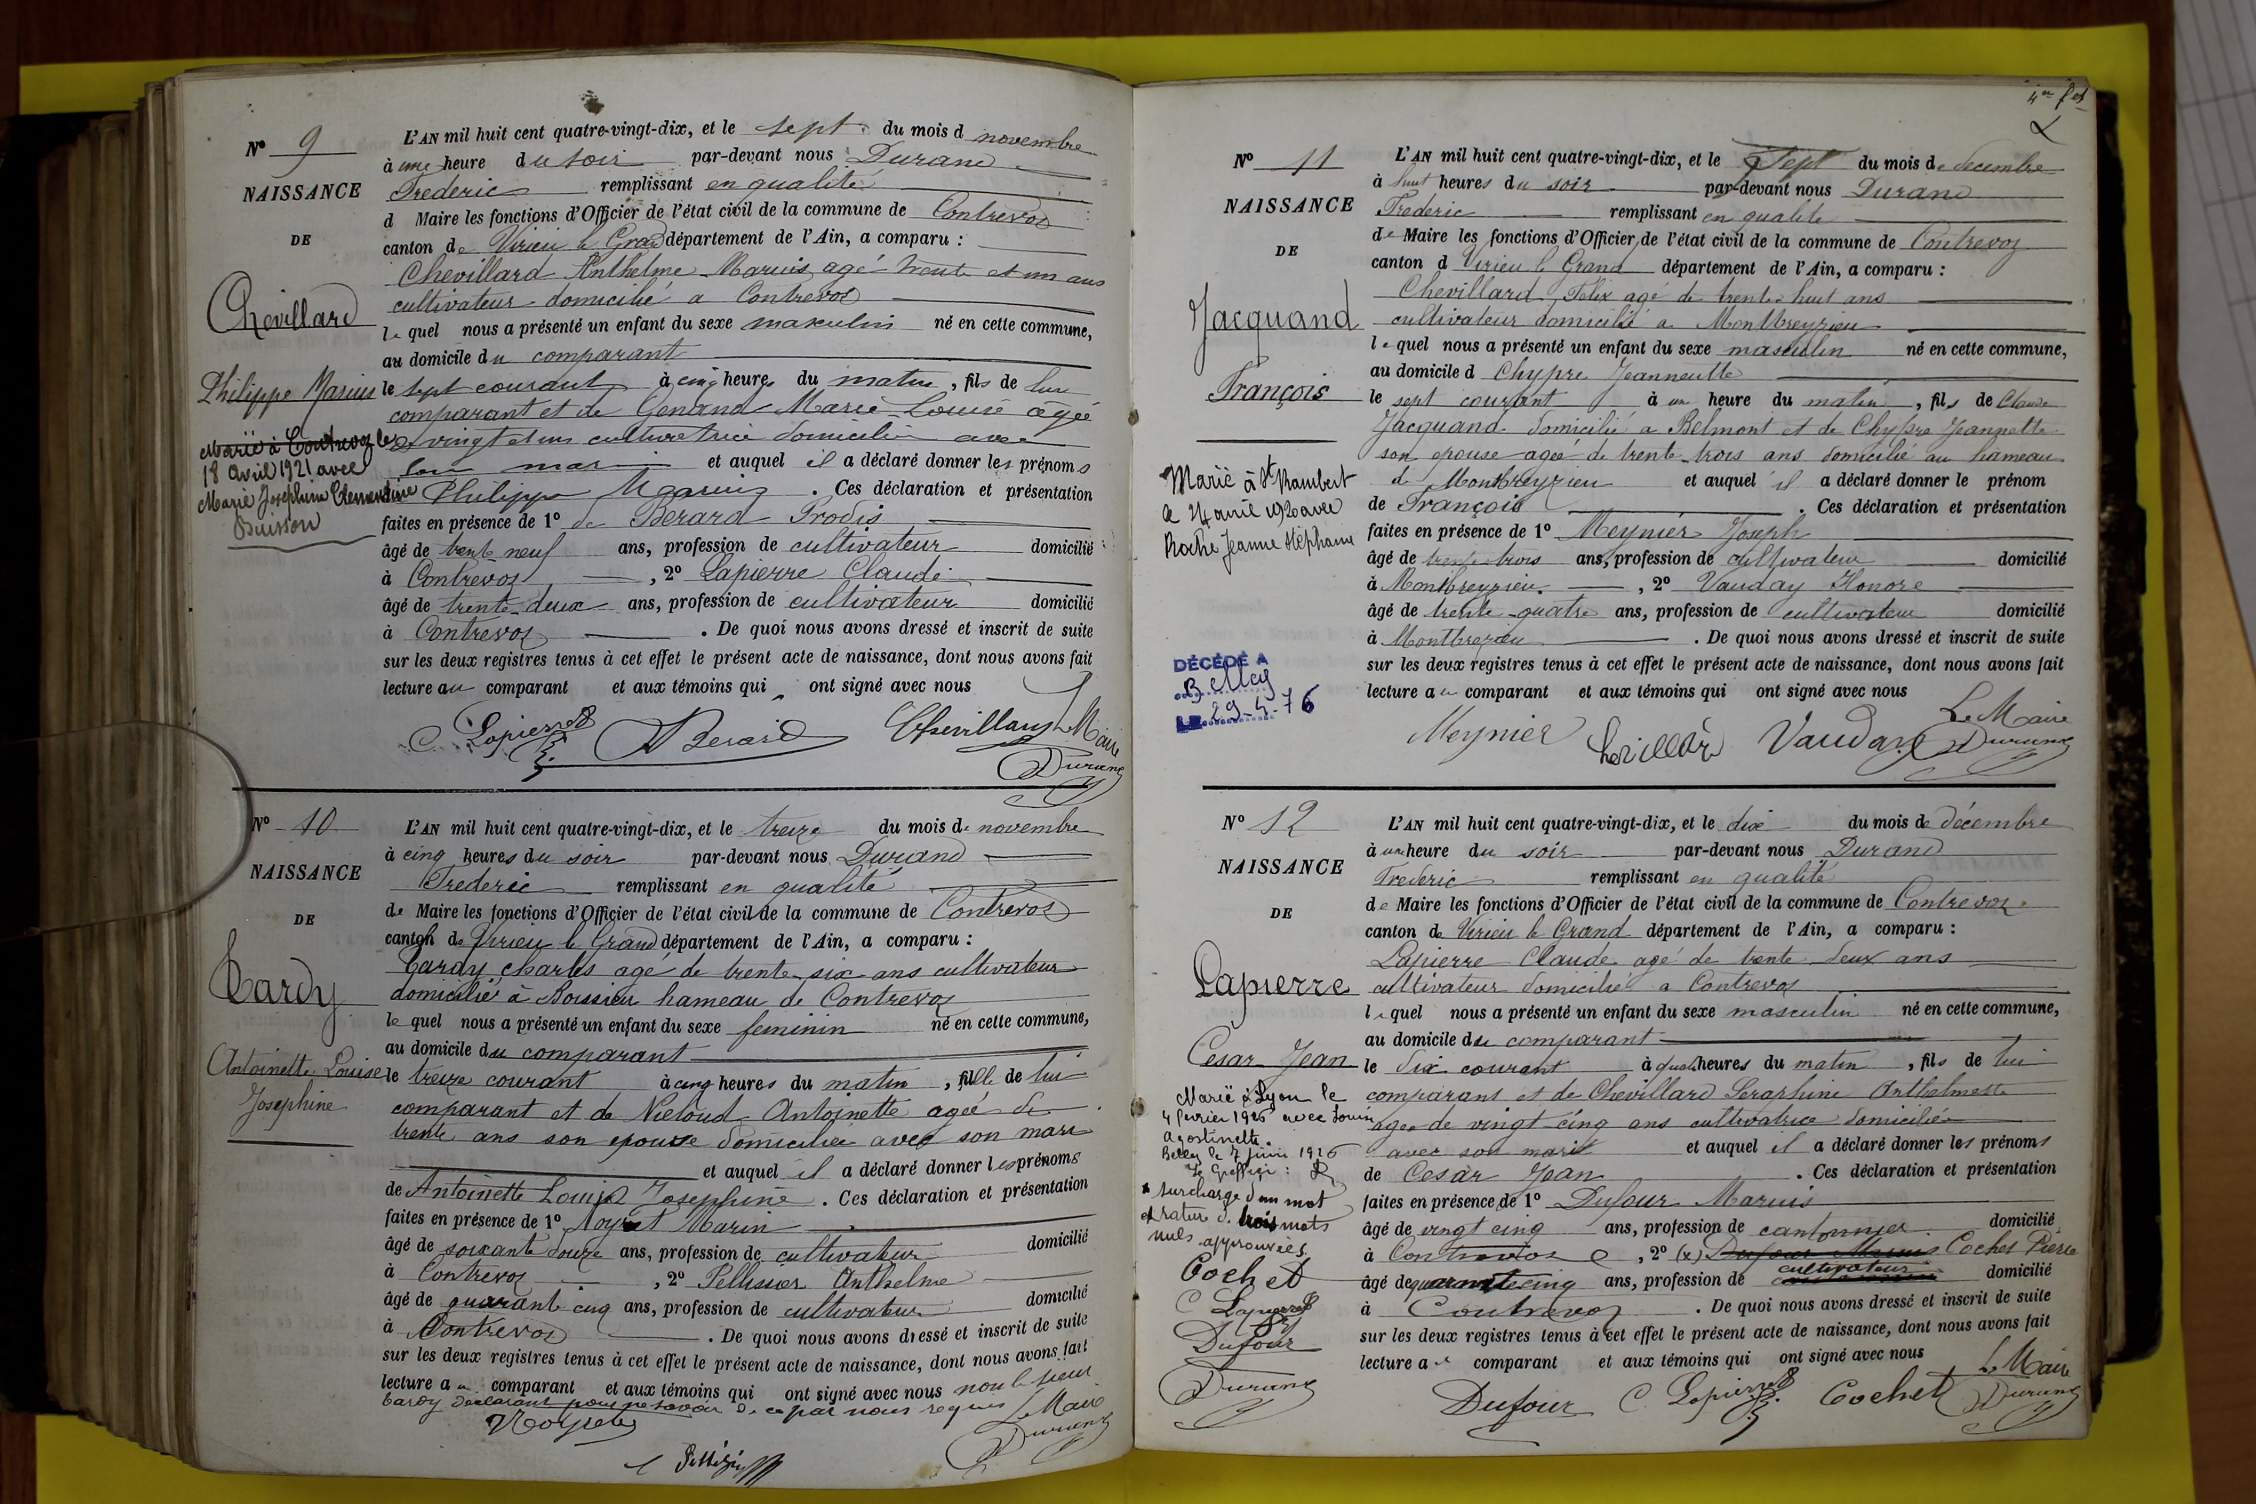 N° 9
NAISSANCE
DE
Chevillard
Philippe Marius
Marié à Contrevoz le
18 avril 1921 avec
Marie Josephine Clementine
Buisson
L'AN mil huit cent quatre-vingt-dix, et le sept du mois d novembre
à une heure du soir par-devant nous Durand
Frederic remplissant en qualité
d Maire les fonctions d'Officier de l'état civil de la commune de Contrevoz
canton de Virieu le Grand département de l'Ain, a comparu :
Chevillard Anthelme Marius agé trente et un ans
cultivateur domicilié a Contrevoz
le quel nous a présenté un enfant du sexe masculin né en cette commune,
au domicile du comparant
le sept courant à cinq heures du matin, fils de lui
comparant et de Genand Marie Louise agée
de vingt et un cultivatrice domiciliée avec
son mari et auquel il a déclaré donner les prénoms
de Philippe Marius. Ces déclaration et présentation
faites en présence de 1° de Berard Prodis
âgé de trente neuf ans, profession de cultivateur domicilié
à Contrevoz, 2° Lapierre Claude
âgé de trente-deux ans, profession de cultivateur domicilié
à Contrevoz. De quoi nous avons dressé et inscrit de suite
sur les deux registres tenus à cet effet le présent acte de naissance, dont nous avons fait
lecture au comparant et aux témoins qui ont signé avec nous
C. Lapierre Berard Chevillard Le Maire
Durand
N° 10
NAISSANCE
DE
Tardy
Antoinette Louise
Josephine
L'AN mil huit cent quatre-vingt-dix, et le treize du mois de novembre
à cinq heures du soir par-devant nous Durand
Frederic remplissant en qualité
de Maire les fonctions d'Officier de l'état civil de la commune de Contrevoz
canton de Virieu le Grand département de l'Ain, a comparu :
Tardy Charles agé de trente six ans cultivateur
domicilié à Boissieu hameau de Contrevoz
le quel nous a présenté un enfant du sexe feminin né en cette commune,
au domicile du comparant
le treize courant à cinq heures du matin, fille de lui
comparant et de Nieloud Antoinette agée de
trente ans son epouse domiciliée avec son mari
et auquel il a déclaré donner les prénoms
de Antoinette Louise Josephine. Ces déclaration et présentation
faites en présence de 1° Noyret Marin
âgé de soixante douze ans, profession de cultivateur domicilié
à Contrevoz, 2° Pellisier Anthelme
âgé de quarante cinq ans, profession de cultivateur domicilié
à Contrevoz. De quoi nous avons dressé et inscrit de suite
sur les deux registres tenus à cet effet le présent acte de naissance, dont nous avons fait
lecture au comparant et aux témoins qui ont signé avec nous non le sieur
Tardy déclarant pour ne savoir de ce par nous requis Le Maire
Noyret Durand
4me f et
N° 11
NAISSANCE
DE
Jacquand
François
Marié à St Rambert
le 24 avril 1920 avec
Roche Jeanne Stéphanie
DÉCÉDÉ A
Belley
LE 29-4-76
L'AN mil huit cent quatre-vingt-dix, et le sept du mois de decembre
à huit heures du soir par-devant nous Durand
Frederic remplissant en qualité
de Maire les fonctions d'Officier de l'état civil de la commune de Contrevoz
canton d Virieu le Grand département de l'Ain, a comparu :
Chevillard Félix agé de trente huit ans
cultivateur domicilié a Montbreyzieu
le quel nous a présenté un enfant du sexe masculin né en cette commune,
au domicile d Chypre Jeannette
le sept courant à une heure du matin, fils de Claude
Jacquand domicilié a Belmont et de Chypre Jeannette
son epouse agée de trente trois ans domicilié au hameau
de Montbreyzieu et auquel il a déclaré donner le prénom
de François. Ces déclaration et présentation
faites en présence de 1° Meynier Joseph
âgé de trente trois ans, profession de cultivateur domicilié
à Montbreyzieu, 2° Vauday Honoré
âgé de trente-quatre ans, profession de cultivateur domicilié
à Montbrezieu. De quoi nous avons dressé et inscrit de suite
sur les deux registres tenus à cet effet le présent acte de naissance, dont nous avons fait
lecture au comparant et aux témoins qui ont signé avec nous
Le Maire
Meynier Chevillard Vauday Durand
N° 12
NAISSANCE
DE
Lapierre
Cesar Jean
Marié à Lyon le
4 fevrier 1926 avec Louise
Agostinette.
Belley le 7 juin 1926
Le Greffier :
surcharge d'un mot
et rature de trois mots
nuls approuvées
Cochet
C Lapierre
Dufour
Durand
L'AN mil huit cent quatre-vingt-dix, et le dix du mois de décembre
à une heure du soir par-devant nous Durand
Frederic remplissant en qualité
de Maire les fonctions d'Officier de l'état civil de la commune de Contrevoz
canton de Virieu le Grand département de l'Ain, a comparu :
Lapierre Claude agé de trente deux ans
cultivateur domicilié a Contrevoz
le quel nous a présenté un enfant du sexe masculin né en cette commune,
au domicile du comparant
le dix courant à quatre heures du matin, fils de lui
comparant et de Chevillard Seraphine Anthelmette
agée de vingt-cinq ans cultivatrice domiciliée
avec son marit et auquel il a déclaré donner les prénoms
de Cesar Jean. Ces déclaration et présentation
faites en présence de 1° Dufour Marius
âgé de vingt cinq ans, profession de cantonnier domicilié
à Contrevoz, 2° (x) Dufour Marius Cochet Pierre
âgé de quarante cinq ans, profession de cultivateur domicilié
à Contrevoz. De quoi nous avons dressé et inscrit de suite
sur les deux registres tenus à cet effet le présent acte de naissance, dont nous avons fait
lecture au comparant et aux témoins qui ont signé avec nous
Le Maire
Dufour C. Lapierre Cochet Durand